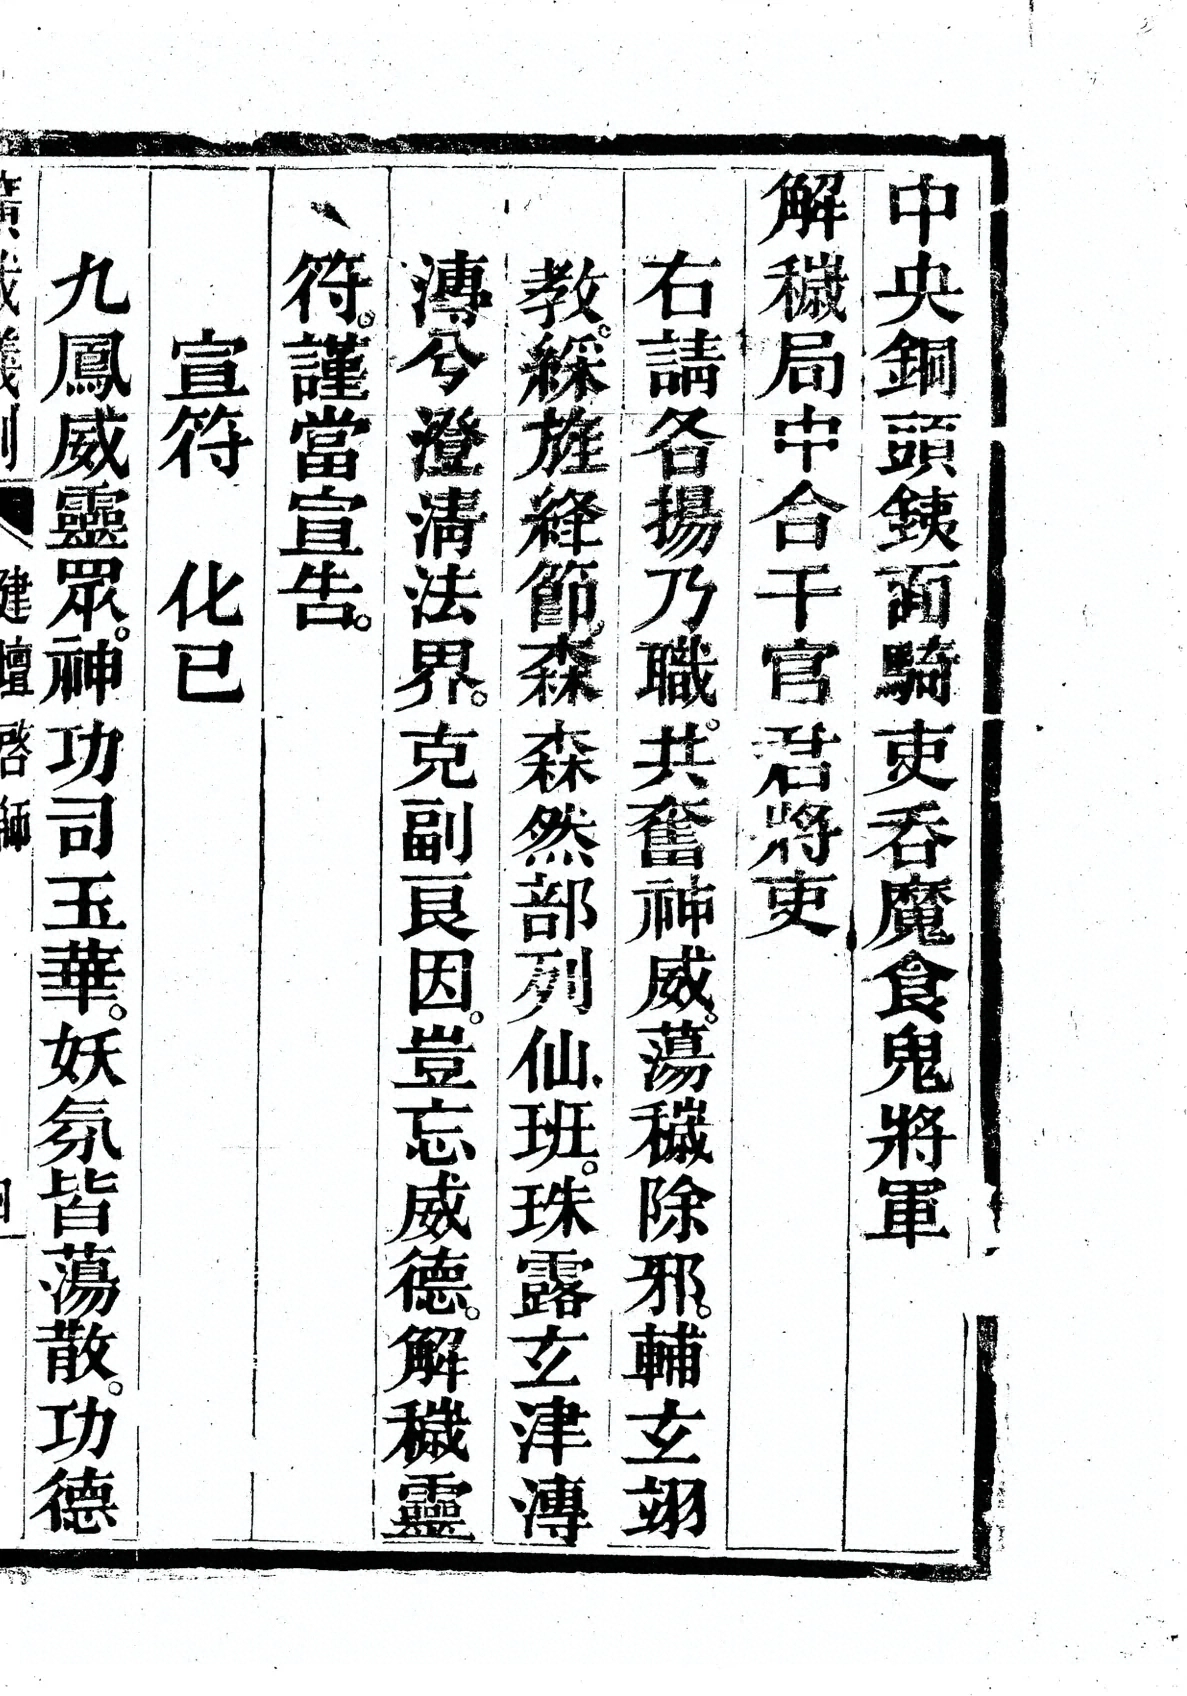 中央銅頭銕面騎吏吞魔食鬼將軍
解穢局中合干官君將吏
右請各揚乃職。共奮神威。蕩穢除邪。輔玄翊
教。綵旌絳節。森森然部列仙班。珠露玄津漙
漙兮澄清法界。克副良因。豈忘威德。解穢靈
符。謹當宣告。
宣符　化已
九鳳威靈眾。神功司玉華。妖氛皆蕩散。功德
廣成儀制　建壇啓師　四